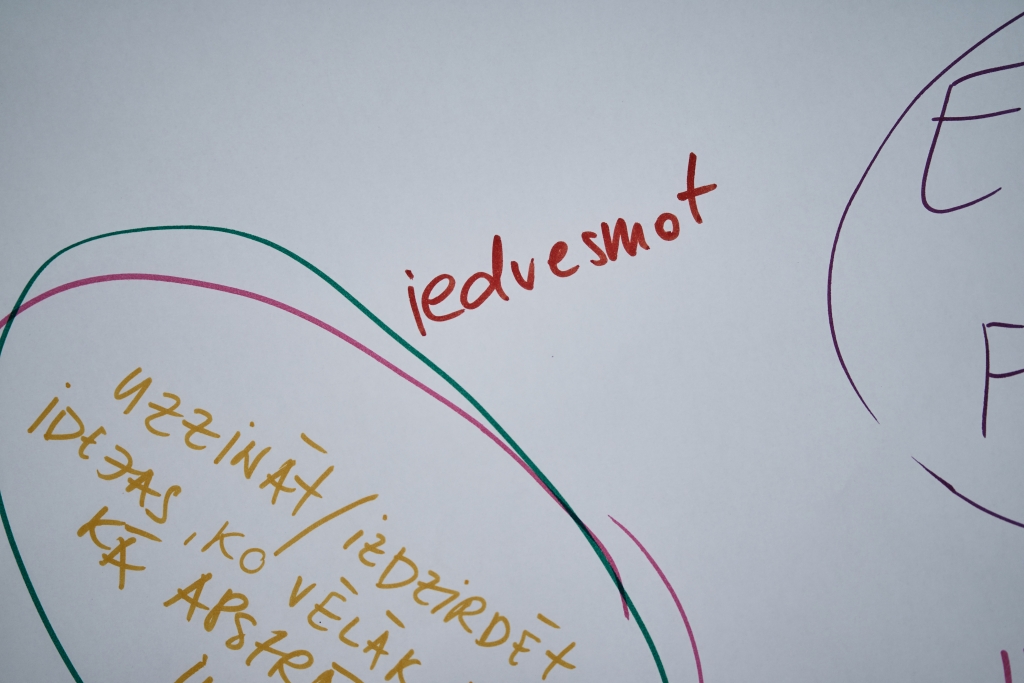 iedvesmot
UZZINĀT/IZDZIRDĒT
IDEJAS, KO VĒLĀK
KĀ